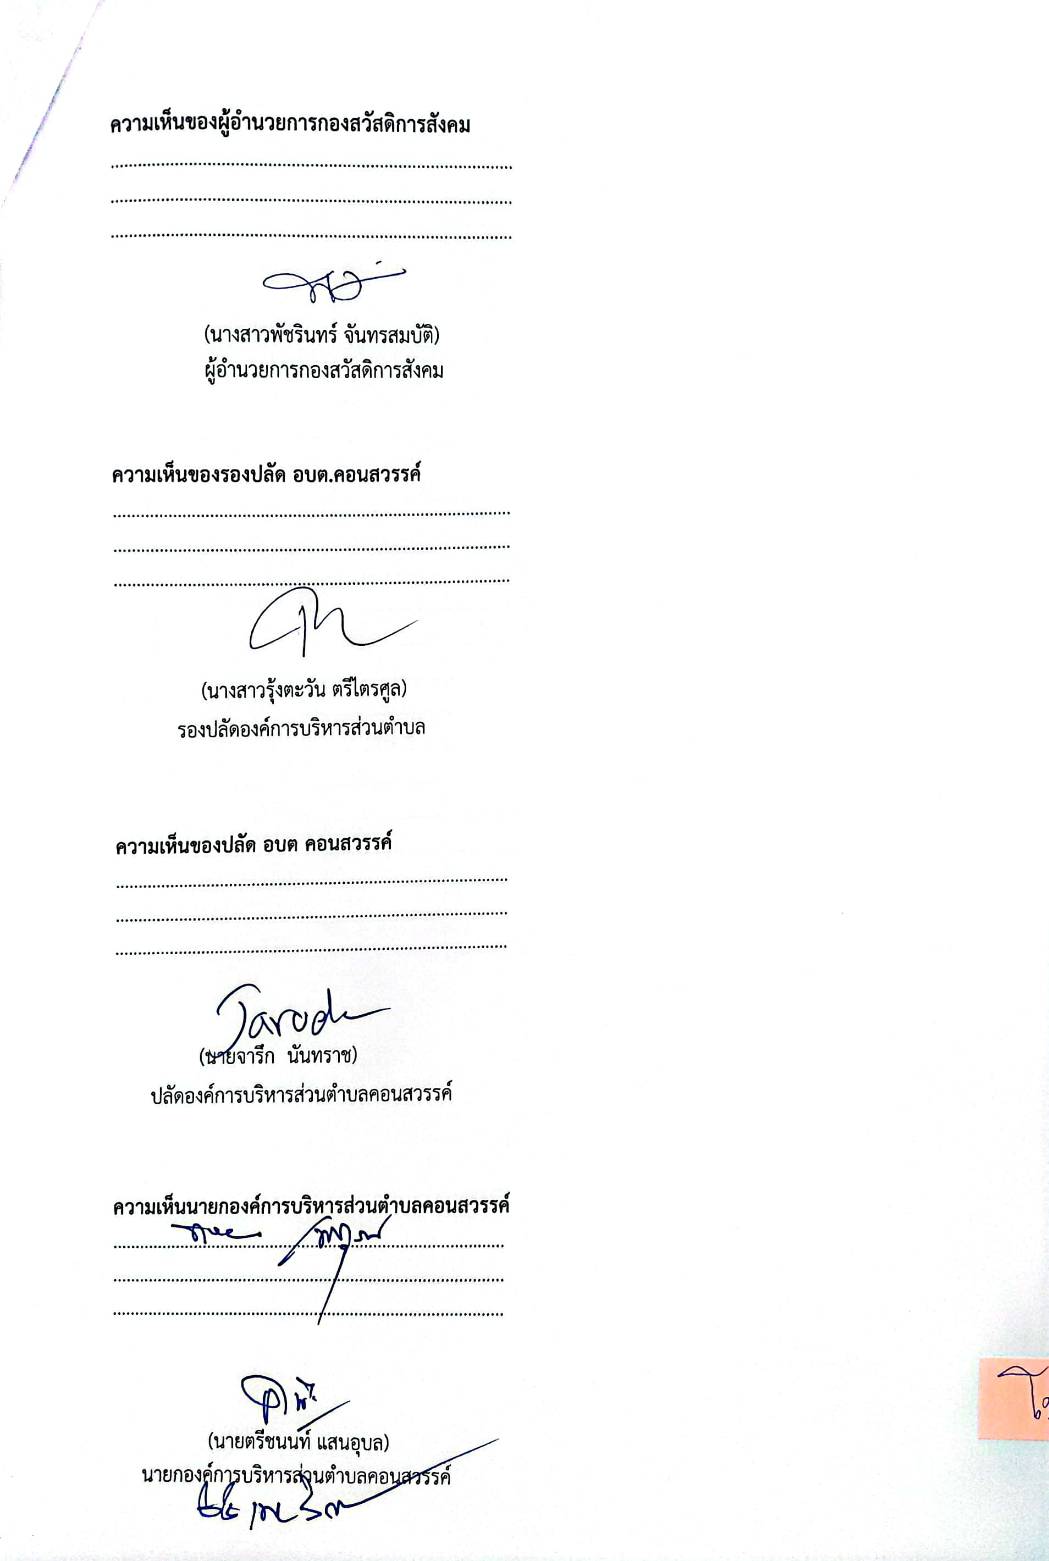 ความเห็นของผู้อำนวยการกองสวัสดิการสังคม
................................................................................
................................................................................
................................................................................
(นางสาวพัชรินทร์ จันทรสมบัติ)
ผู้อำนวยการกองสวัสดิการสังคม
ความเห็นของรองปลัด อบต.คอนสวรรค์
................................................................................
................................................................................
................................................................................
(นางสาวรุ้งตะวัน ตรีไตรศูล)
รองปลัดองค์การบริหารส่วนตำบล
ความเห็นของปลัด อบต คอนสวรรค์
................................................................................
................................................................................
................................................................................
(นายจารึก นันทราช)
ปลัดองค์การบริหารส่วนตำบลคอนสวรรค์
ความเห็นนายกองค์การบริหารส่วนตำบลคอนสวรรค์
................................................................................
................................................................................
................................................................................
(นายตรีชนนท์ แสนอุบล)
นายกองค์การบริหารส่วนตำบลคอนสวรรค์